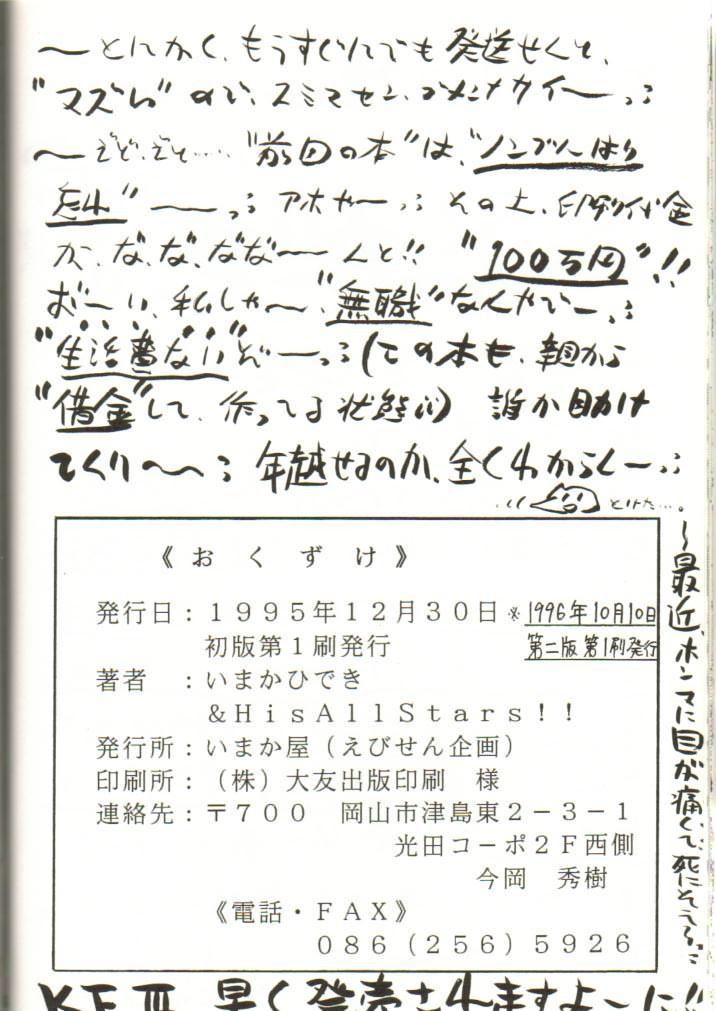 〜とにかく、もうすぐにでも発送せんと、
"マズい"ので、スミマセン、ゴメンナサイ〜っ;
〜ぞど、ぞど……"前回の本"は、"ノンブルはり
忘れ"〜〜っ; アホや〜っ; その上、印刷代金
が、な、な、なな〜〜んと!! "100万円"!!
お〜い、私しゃ〜、"無職"なんやで〜っ;
"生活費ない"ぞ〜っ;(この本も、親から
"借金"して、作ってる状態;) 誰か助け
てくり〜〜; 年越せるのか、全くわからん〜っ;
とけた…。
《おくずけ》
発行日：１９９５年１２月３０日 ※1996年10月10日
初版第１刷発行 第二版第1刷発行
著者　：いまかひでき
＆ＨｉｓＡｌｌＳｔａｒｓ！！
発行所：いまか屋（えびせん企画）
印刷所：（株）大友出版印刷　様
連絡先：〒７００　岡山市津島東２－３－１
光田コーポ２Ｆ西側
今岡　秀樹
《電話・ＦＡＸ》
０８６（２５６）５９２６
〜最近、ホンマに目が痛くて、死にそうっ;
KFⅢ 早く発売されますよーに!!